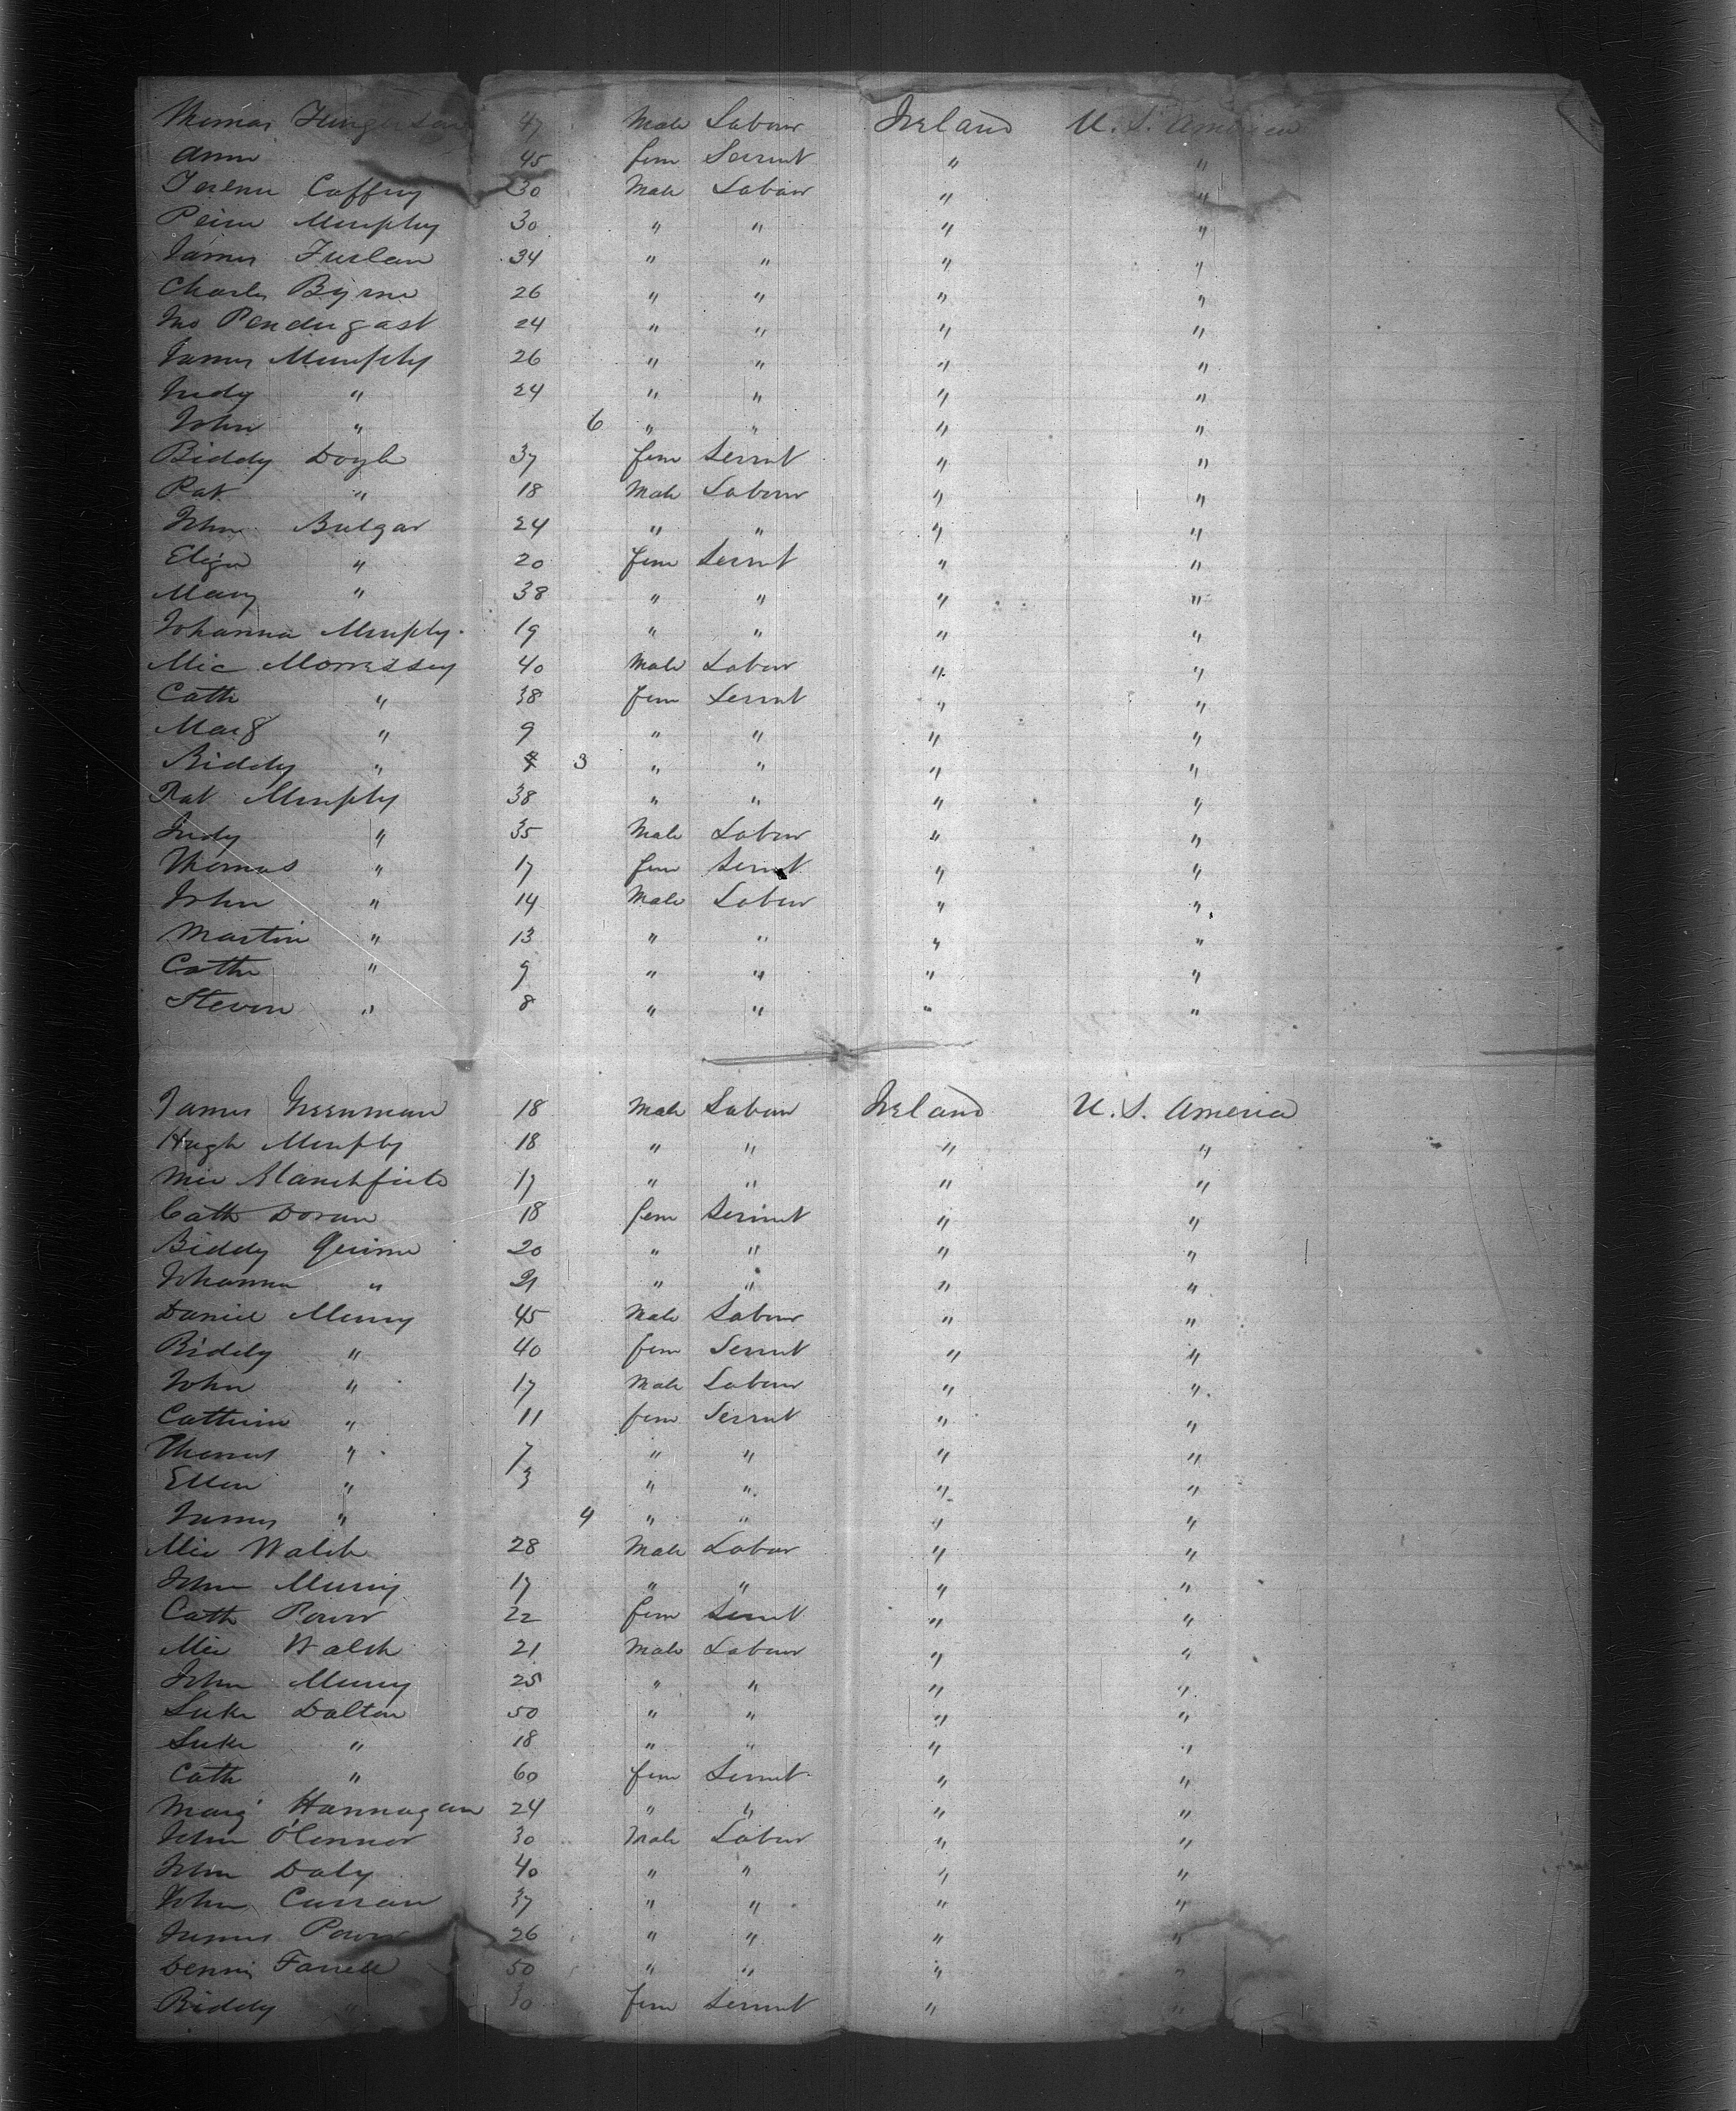 Thomas 47 Male Labour Ireland U. S. America
Ann 45 fem Servnt " "
Terenc Caffry 30 Male Labour " "
Peirc Murphy 30 " " " "
James Furlan 34 " " " "
Charls Byrne 26 " " " "
Jno Pendergast 24 " " " "
James Murphy 26 " " " "
Judy " 24 " " " "
John " 6 " " " "
Biddy Doyle 37 fem Servnt " "
Pat " 18 Male Labour " "
John Bulgar 24 " " " "
Eliza " 20 fem Servnt " "
Mary " 38 " " " "
Johanna Murphy 19 " " " "
Mic Morrissey 40 Male Labour " "
Cath " 38 fem Servnt " "
Marg " 9 " " " "
Biddy " 3 " " " "
Pat Murphy 38 " " " "
Judy " 35 Male Labour " "
Thomas " 17 fem Servnt " "
John " 14 Male Labour " "
Martin " 13 " " " "
Cath " 9 " " " "
Steven " 8 " " " "
James 18 Male Labour Ireland U. S. America
Hugh Murphy 18 " " " "
Mic Blanchfield 17 " " " "
Cath Doran 18 fem Servnt " "
Biddy Quinn 20 " " " "
Johanna " 21 " " " "
Daniel Murry 45 Male Labour " "
Biddy " 40 fem Servnt " "
John " 17 Male Labour " "
Catherine " 11 fem Servnt " "
Thomas " 7 " " " "
Ellen " 3 " " " "
James " 4 " " " "
Mic Walsh 28 Male Labour " "
John Murry 17 " " " "
Cath Power 22 fem Servnt " "
Mic Walsh 21 Male Labour " "
John Murry 25 " " " "
Luke Dalton 50 " " " "
Luke " 18 " " " "
Cath " 60 fem Servnt " "
Marg Hannagan 24 " " " "
John O'Connor 30 Male Labour " "
John Daly 40 " " " "
John Curran 37 " " " "
James Power 26 " " " "
Dennis Farrell 50 " " " "
Biddy " 30 fem Servnt " "